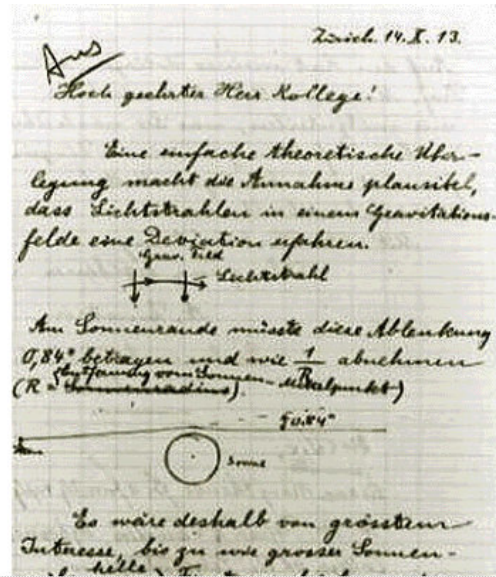 Zürich. 14. X. 13.
Hoch geehrter Herr Kollege!
Eine einfache theoretische Über-
legung macht die Annahme plausibel,
dass Lichtstrahlen in einem Gravitations-
felde eine Deviation erfahren.
Grav. Feld
Lichtstrahl
Am Sonnenrande müsste diese Ablenkung
0,84" betragen und wie 1/R abnehmen
(R = Entfernung vom Sonnen-Mittelpunkt)
0.84"
Sonne
Es wäre deshalb von grösstem
Interesse, bis zu wie grosser Sonnen-